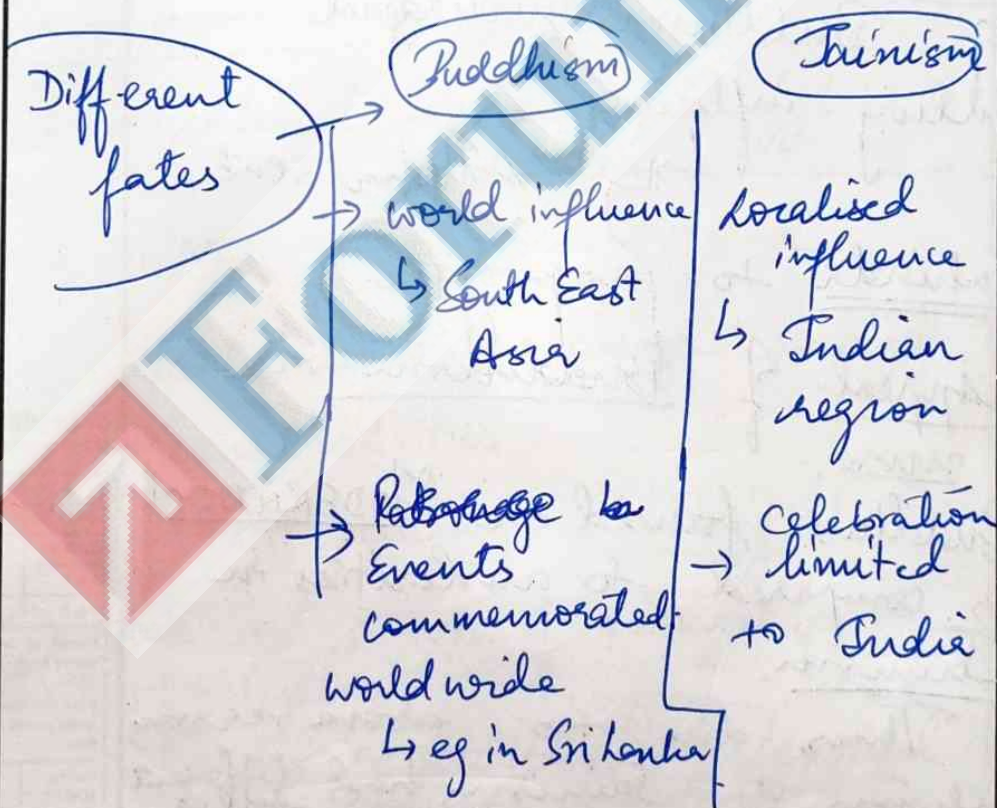 Different
fates
→ Buddhism
→ world influence
↳ South East
Asia
→ Patronage
Events
commemorated
world wide
↳ eg in Sri Lanka
Jainism
Localised
influence
↳ Indian
region
celebration
→ limited
to India
Forum